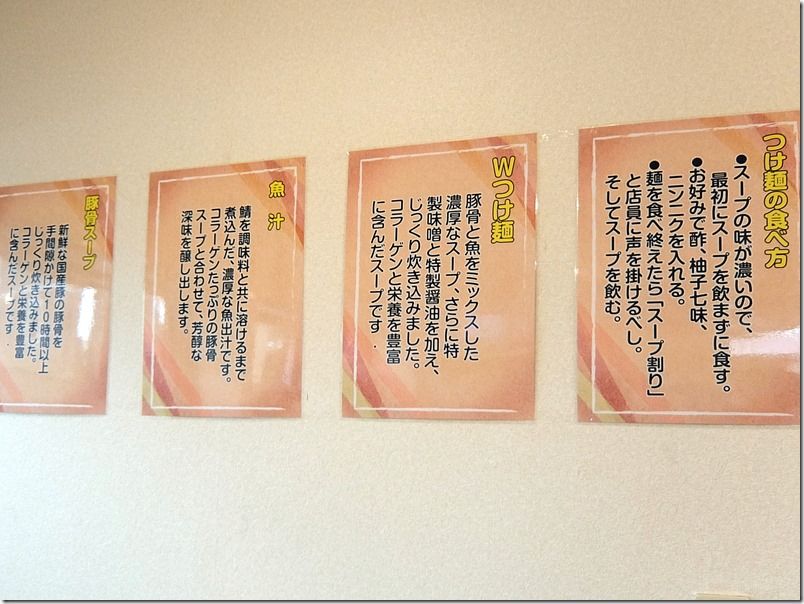 つけ麺の食べ方
●スープの味が濃いので、
最初にスープを飲まずに食す。
●お好みで酢、柚子七味、
ニンニクを入れる。
●麺を食べ終えたら「スープ割り」
と店員に声を掛けるべし。
そしてスープを飲む。
Wつけ麺
豚骨と魚をミックスした
濃厚なスープ、さらに特
製味噌と特製醤油を加え、
じっくり炊き込みました。
コラーゲンと栄養を豊富
に含んだスープです.
魚汁
鯖を調味料と共に溶けるまで
煮込んだ、濃厚な魚出汁です。
コラーゲンたっぷりの豚骨
スープと合わせて、芳醇な
深味を醸し出します。
豚骨スープ
新鮮な国産豚の豚骨を
手間隙かけて10時間以上
じっくり炊き込みました。
コラーゲンと栄養を豊富
に含んだスープです.